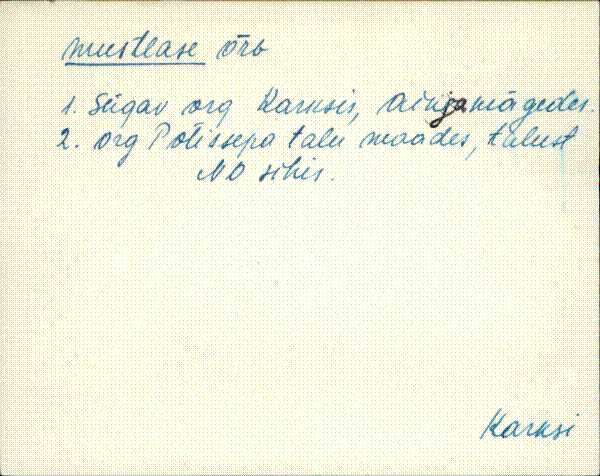 mustlase õrb
1. Sügav org Karksis, Ainjamägedes.
2. org Potissepa talu maades, talust
NO sihis.
Karksi